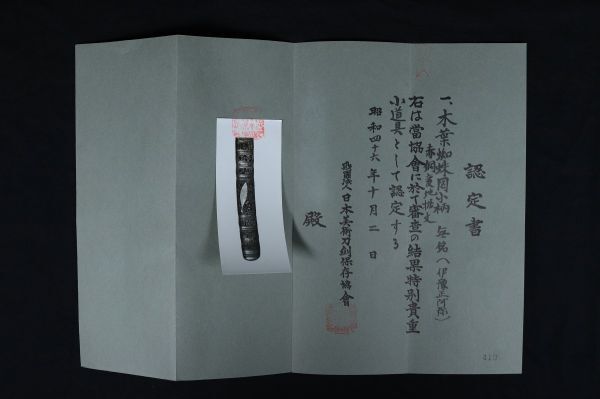 認定書
一、木葉蜘蛛図小柄 無銘(伊豫正阿弥)
赤銅魚地据文
右は當協會に於て審査の結果特別貴重
小道具として認定する
昭和四十六年十月二日
財団法人日本美術刀剣保存協會
殿